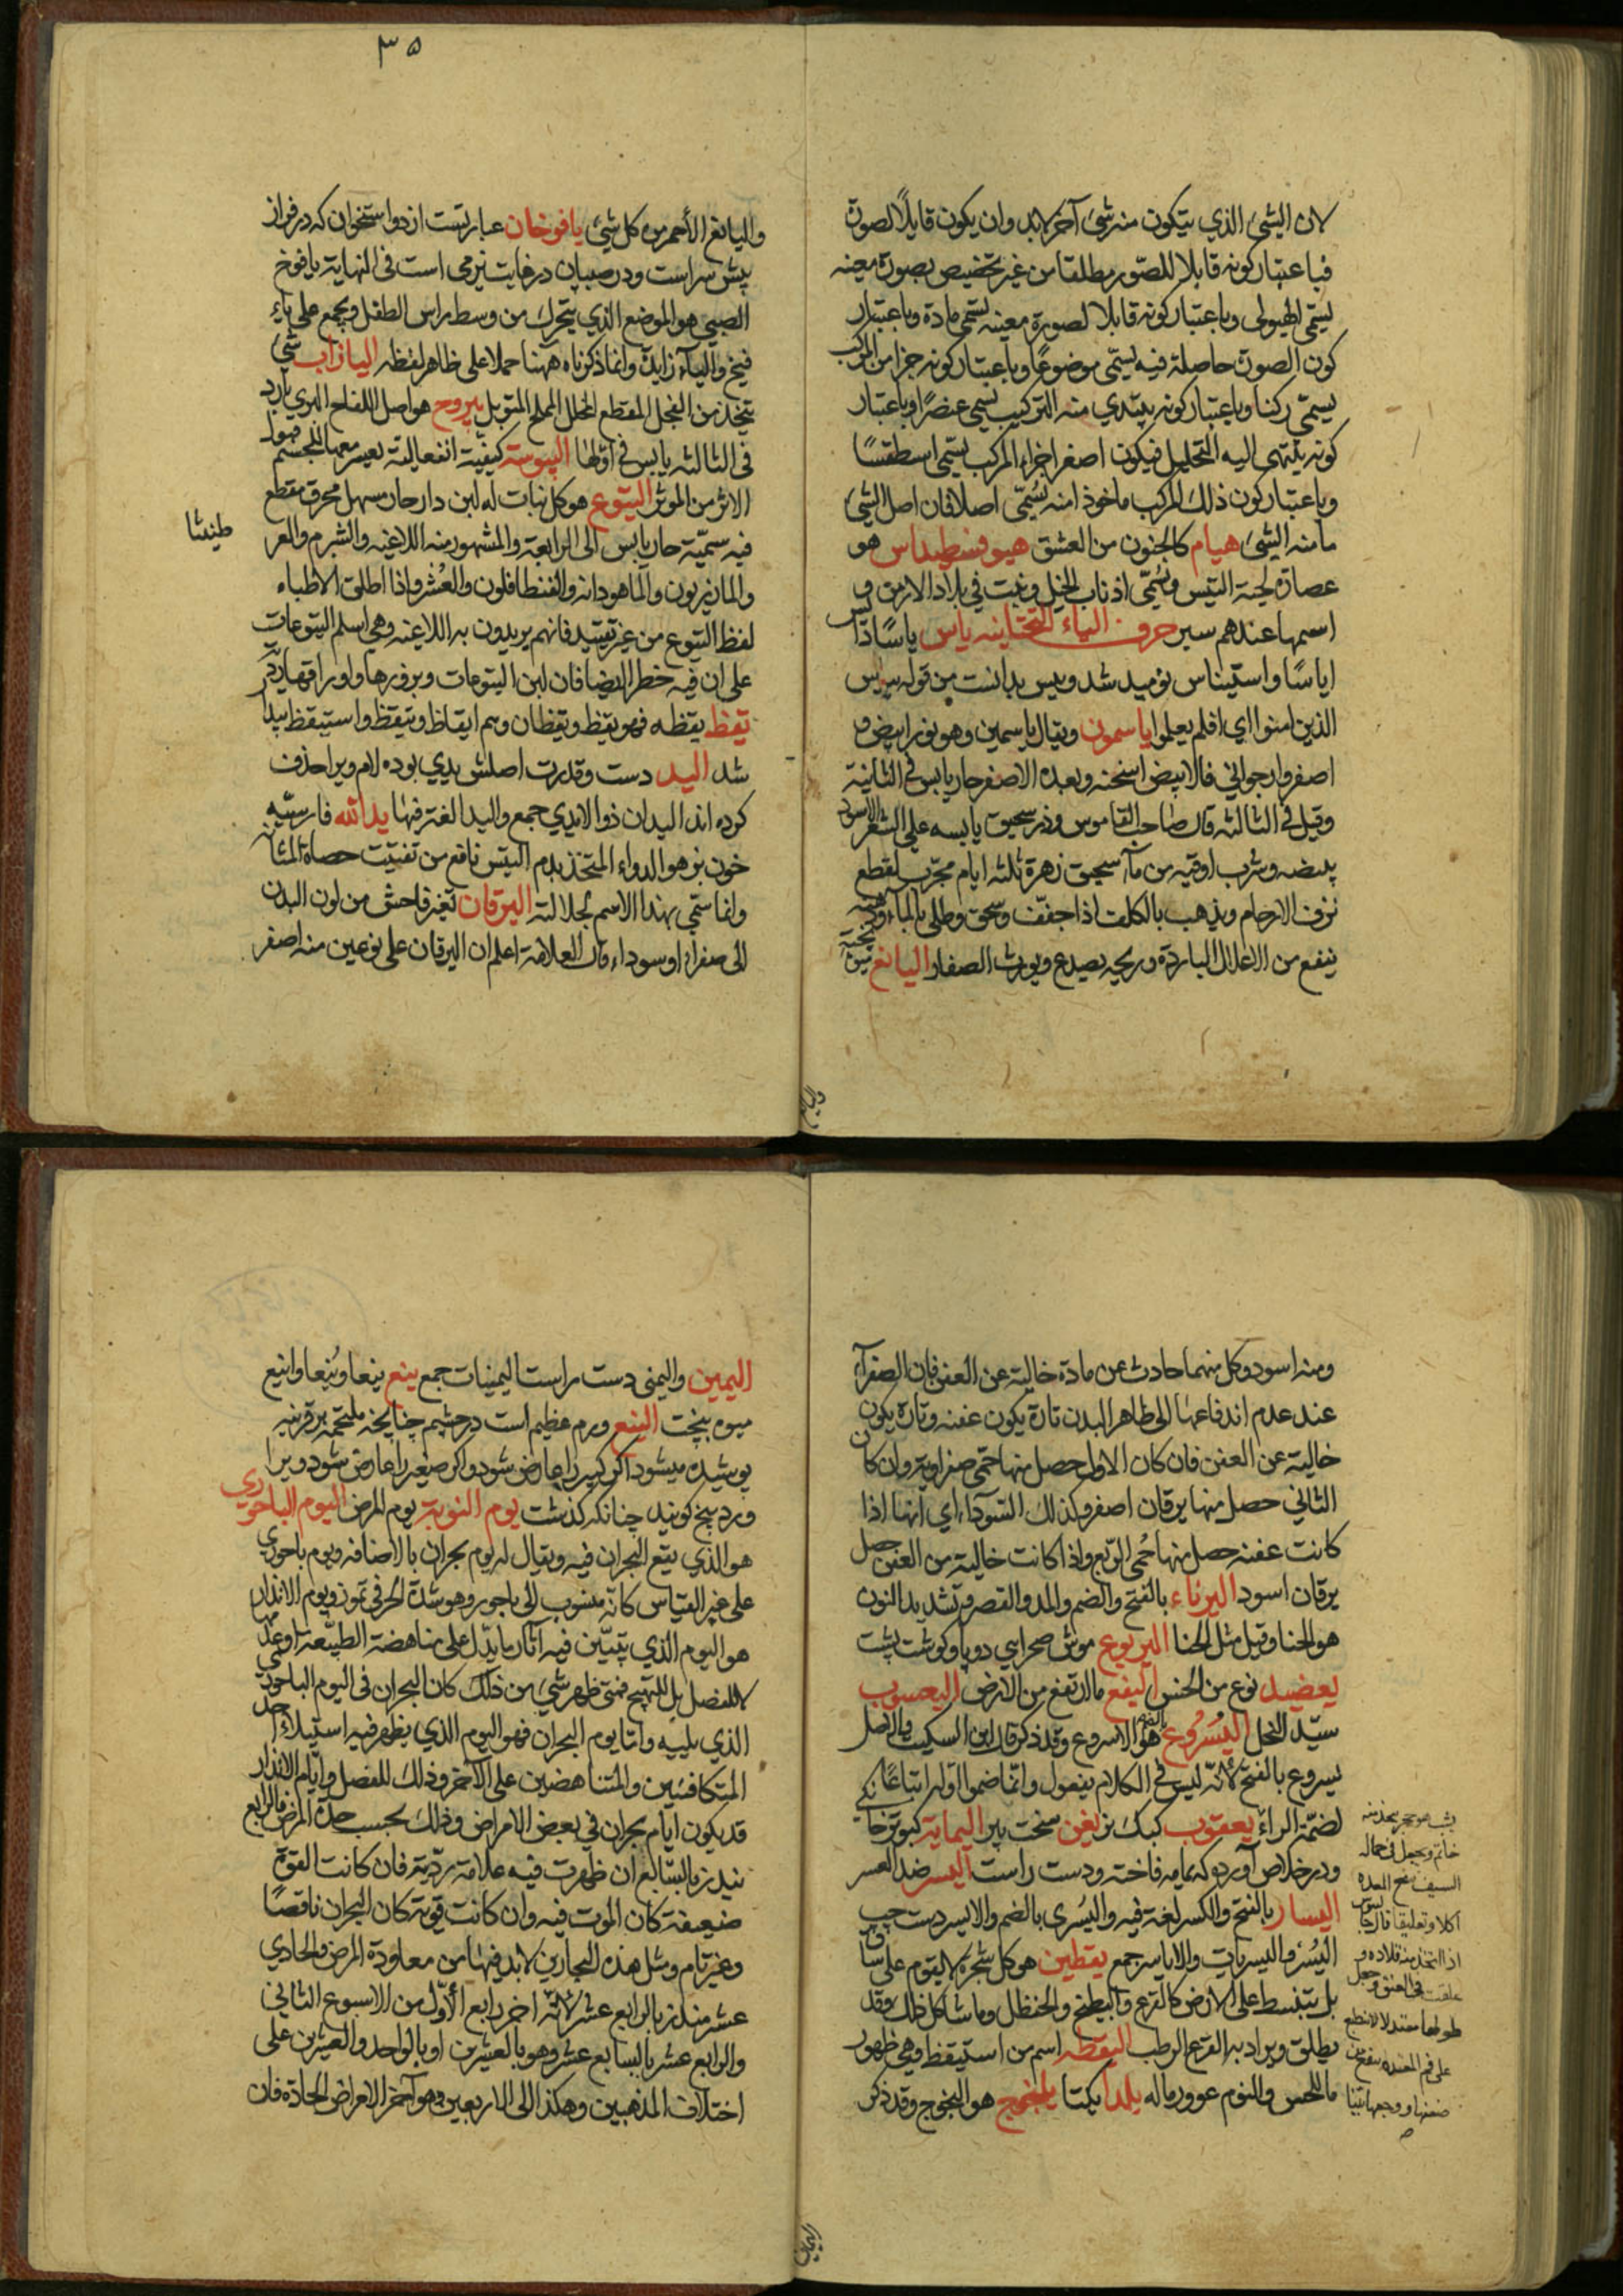 لان الشئ الذي يتكون منه شئ آخر لابد وان يكون قابلاً لصورة
فباعتبار كونه قابلا للصور مطلقا من غير تخصيص بصورة معينه
يسمّى الهيولى وباعتبار كونه قابلا لصورة معينه يسمّى مادة وباعتبار
كون الصورة حاصلة فيه يسمّى موضوعًا وباعتبار كونه جزا من المركب
يسمّى ركنا وباعتبار كونه يبتدي منه التركيب يسمى عنصرًا وباعتبار
كونه ينتهى اليه التحليل فيكون اصغر اجزاء المركب يسمّى اسطقسًا
وباعتبار كون ذلك المركب ماخوذا منه يُسمّى اصلا فان اصل الشئ
ما منه الشئ هيام كالجنون من العشق هيوفسطيداس هو
عصارة لحية التيس ويُسمّى اذناب الخيل وينبت في بلاد الارمن و
اسمها عندهم سير حرف الياء التحتانيه ياس ياسًا
اياسًا واستيناس نوميد شد ويس بدانست من قوله
الذين امنوا اي افلم يعلموا ياسمون ويقال ياسمين وهو نور ابيض و
اصفر وارجواني فالابيض اسخنه وبعده الاصفر حار يابس في الثانية
وقيل في الثالثه قال صاحب القاموس وذر سحيق يابسه على الشعر الاسود
يبيضه وشرب اوقيه من ماء سحيق زهرة ثلثه ايام مجرب لقطع
نزف الارحام ويذهب بالكلف اذا جفّف وسحق وطلى بالماء
ينفع من الاعلال الباردة وريحه يصدع ويورث الصفار اليانع
واليانع
٣٥
واليانع الأحمر من كل شئ يافوخان عبارتست از دو استخوان كه در فراز
پيش سر است ودر صبيان در غايت نرمى است فى النهاية يافوخ
الصبى هو الموضع الذي يتحرك من وسط راس الطفل ويجمع على يا
فيخ والياء زايدة وانما ذكرناه ههنا حملا على ظاهر لفظه اليافزاب شئ
يتخذ من الفجل المقطع المخلل المملح المتوبل يبروح هو اصل اللفاح البري بارد
فى الثالثه يابس فى اوّلها اليبوسة كيفيّة انفعالية يعسر معها للجسم
الاثر من الموثر اليتوع هو كل نبات له لبن دار حار مسهل محرق مقطع
فيه سمّية حار يابس الى الرابعة والمشهور منه اللاغيه والشبرم والعر
طنيثا
والمازريون والماهودانه والفنطافلون والعُشر واذا اطلق الاطباء
لفظ اليتوع من غير تقييد فانهم يريدون به اللاعيه وهى اسلم اليتوعات
على ان فيه خطر ايضا فان لبن اليتوعات وبزورها واوراقها
يقظ يقظه فهو يقظ ويقظان وهم ايقاظ ويتقظ واستيقظ بيدا
شد اليد دست وقدرت اصلش يدي بوده لام ويرا حذف
كرده اند اليدان ذو الايدي جمع واليدا لغة فيها يدالله فارسيّه
خون بز هو الدواء المتخذ بدم التيس نافع من تفتيت حصاة المثانه
وانما سمّي بهذا الاسم لجلالته اليرقان تغير فاحش من لون البدن
الى صفراء او سوداء قال العلامة اعلم ان اليرقان على نوعين منه اصفر
ومنه اسود وكل منهما حادث عن مادة خالية عن العفن فان الصفراء
عند عدم اندفاعها الى ظاهر البدن تارة يكون عفنه وتارة يكون
خالية عن العفن فان كان الاول حصل منها حمّى صفراوية وان كان
الثاني حصل منها يرقان اصفر وكذلك السوداء اي انها اذا
كانت عفنه حصل منها حُمى الربع واذا كانت خالية من العفن حصل
يرقان اسود اليرناء بالفتح والضم والمد والقصر وتشديد النون
هو الحنا وقيل مثل الحنا اليربوع موش صحرايي دوپا وكوشت پشت
يعضيد نوع من الخس اليفع ما ارتفع من الارض اليعسوب
سيّد النحل اليُسْرُوع بالضم هو الاسروع وقد ذكر قال ابن السكيت والاصل
يسروع بالفتح لانّه ليس فى الكلام يفعول وانّما ضموا اوّله اتباعًا
لضمّة الراء يعقوب كبك نر يفن سخت پير اليمامة كبوتر خا
ودر خلاص آورده كه يمامه فاخته ودست راست اليسر ضد العسر
اليسار بالفتح والكسر لغة فيه واليُسرى بالضم والايسر دست چپ
اليُسُر واليسريات والاياسر جمع يقطين هو كل شجرة لايقوم على ساق
بل تنبسط على الارض كالقرع والبطيخ والحنظل وما شاكل ذلك وقد
يطلق ويراد به القرع الرطب اليقظه اسم من استيقظ وهي ظهور
ما للحس والنوم غوور ماله يلدا يكتا يلنجوج هو النجوج وقد ذكر
يشب هو حجر يتخذ منه
خاتم ويجعل فى حماله
السيف نفع المعده
اكلا وتعليقا قال جالينوس
اذا اتخذ منه قلاده و
علقت فى العنق وجعل
طولها معتدلا لانطع
على فم المعده ينفع من
اليمين
اليمين واليمنى دست راست اليمينات جمع ينع ينعا ويُنعا واينع
ميوه بپخت الينع ورم عظيم است در چشم چنانچه ملتحمه بر قرنيه
پوشيده ميشود اكر كبير را عارض شود واكر صغير را عارض شود ويرا
وردينج كويند چنانكه كذشت يوم النوبة يوم المرض اليوم الباحوري
هو الذي يقع البحران فيه ويقال له يوم بحران بالاضافه ويوم باحوري
على غير القياس كانه منسوب الى باحور وهو شدة الحر فى تموز ويوم الانذار
هو اليوم الذي يتبيّن فيه آثار ما يدّل على مناهضة الطبيعة او عدو
لا للفصل بل للتهيج فمتى ظهر شئ من ذلك كان البحران فى اليوم الباحوري
الذي يليه وامّا يوم البحران فهو اليوم الذي يظهر فيه استيلاء احد
المتكافئين والمتناهضين على الآخر وذلك للفصل وايّام الانذار
قد يكون ايام بحران في بعض الامراض وذلك بحسب حدة المرض فالرابع
ينذر بالسّابع ان ظهرت فيه علامة رديّة فان كانت القوة
ضعيفة كان الموت فيه وان كانت قويّة كان البحران ناقصًا
وغير تام ومثل هذه البحارين لابد فيها من معاودة المرض والحادي
عشر منذر بالرابع عشر لانّه اخر رابع الأوّل من الاسبوع الثاني
والرابع عشر بالسابع عشر وهو بالعشرين او بالواحد والعشرين على
اختلاف المذهبين وهكذا الى الاربعين وهو آخر الامراض الحادة فان